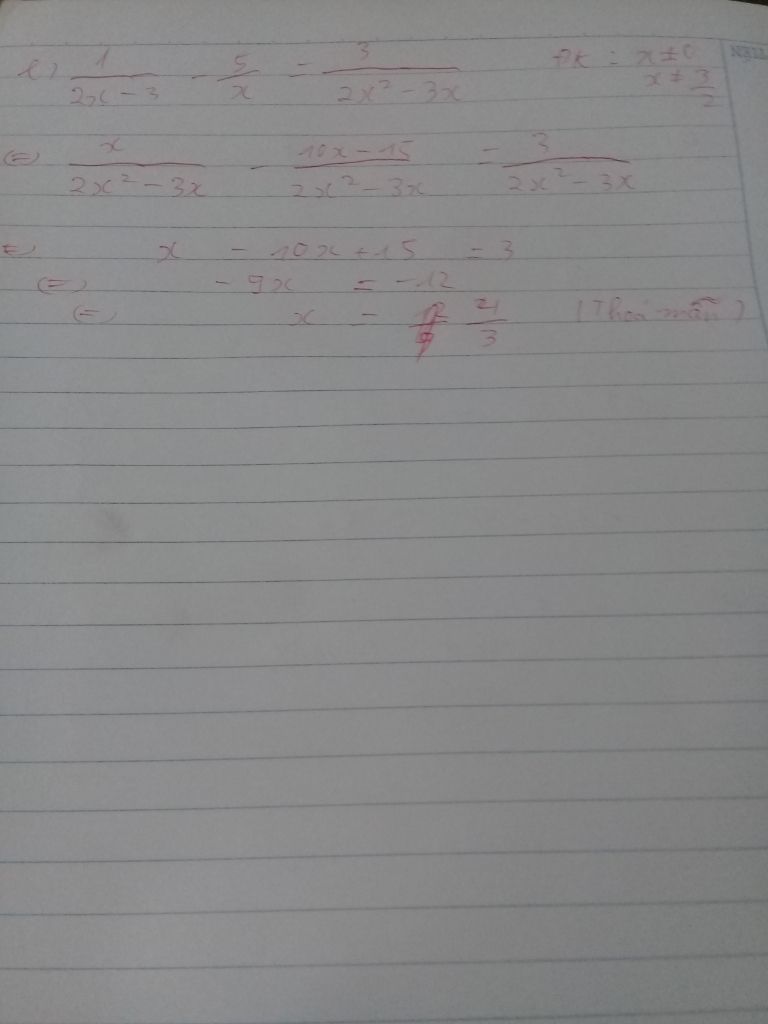 e) 1/(2x-3) - 5/x = 3/(2x² - 3x) ĐK : x ≠ 0
x ≠ 3/2
(=) x/(2x² - 3x) - (10x - 15)/(2x² - 3x) = 3/(2x² - 3x)
(=) x - 10x + 15 = 3
(=) - 9x = -12
(=) x = 4/3 (Thoả mãn)